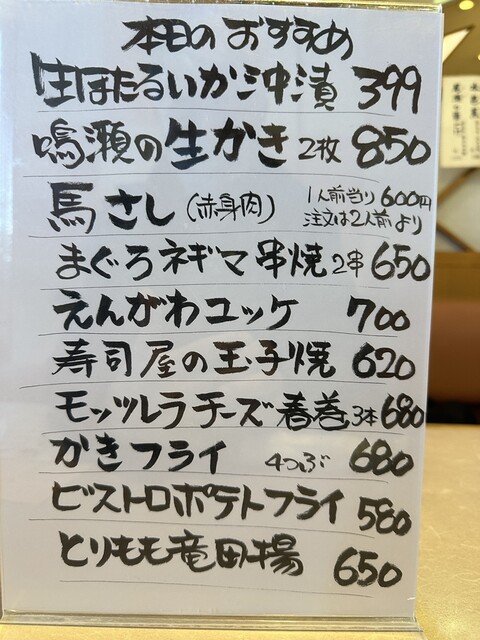 本日のおすすめ
生ほたるいか沖漬 399
鳴瀬の生かき 2枚 850
馬さし (赤身肉) 1人前当り 600円
注文は2人前より
まぐろネギマ串焼 2串 650
えんがわユッケ 700
寿司屋の玉子焼 620
モッツレラチーズ春巻 3本 680
かきフライ 4つぶ 680
ビストロポテトフライ 580
とりもも竜田揚 650